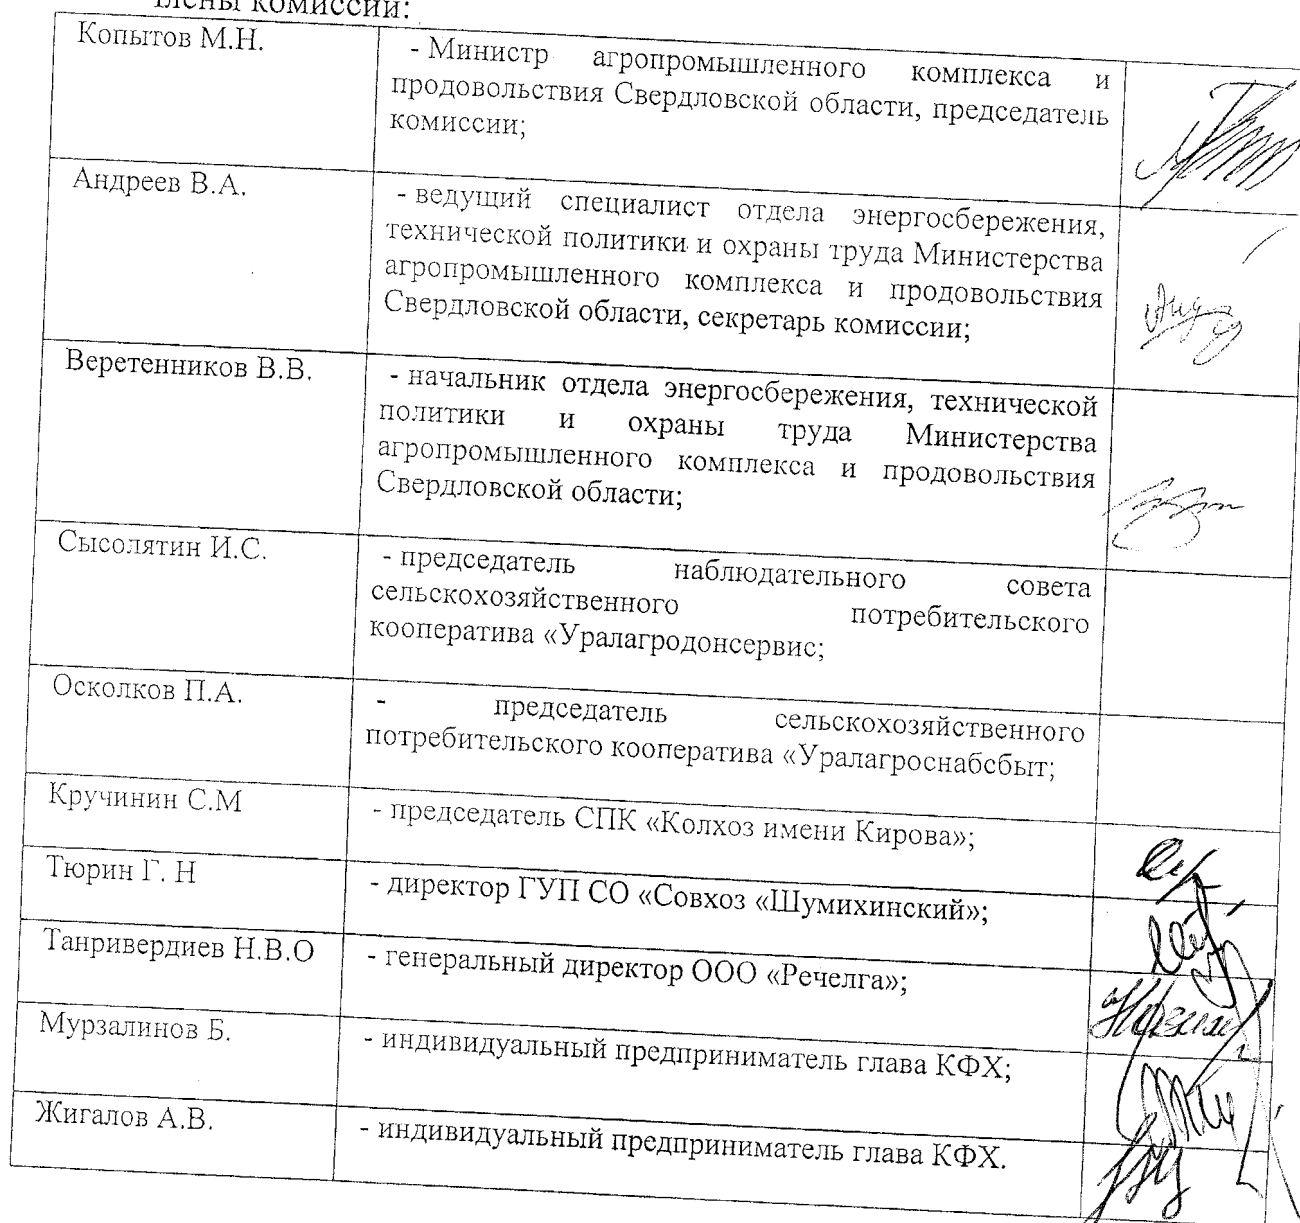 Члены комиссии:
Копытов М.Н.
- Министр агропромышленного комплекса и
продовольствия Свердловской области, председатель
комиссии;
Андреев В.А.
- ведущий специалист отдела энергосбережения,
технической политики и охраны труда Министерства
агропромышленного комплекса и продовольствия
Свердловской области, секретарь комиссии;
Веретенников В.В.
- начальник отдела энергосбережения, технической
политики и охраны труда Министерства
агропромышленного комплекса и продовольствия
Свердловской области;
Сысолятин И.С.
- председатель наблюдательного совета
сельскохозяйственного потребительского
кооператива «Уралагродонсервис;
Осколков П.А.
- председатель сельскохозяйственного
потребительского кооператива «Уралагроснабсбыт;
Кручинин С.М
- председатель СПК «Колхоз имени Кирова»;
Тюрин Г. Н
- директор ГУП СО «Совхоз «Шумихинский»;
Танривердиев Н.В.О
- генеральный директор ООО «Речелга»;
Мурзалинов Б.
- индивидуальный предприниматель глава КФХ;
Жигалов А.В.
- индивидуальный предприниматель глава КФХ.